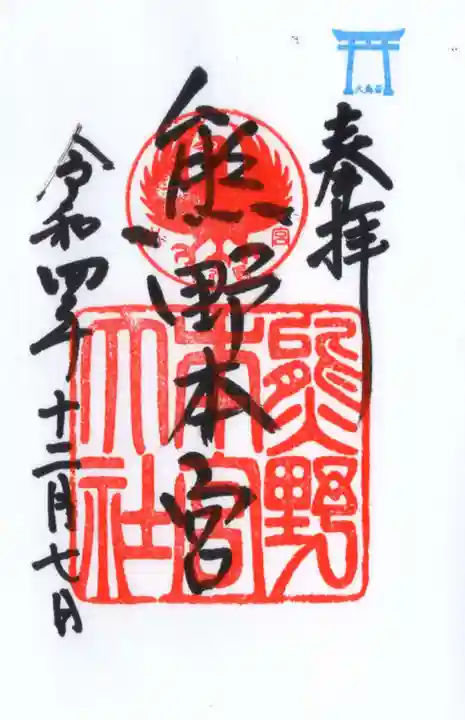 奉拝
熊野本宮
令和四年十二月七日
熊野
本宮
大社